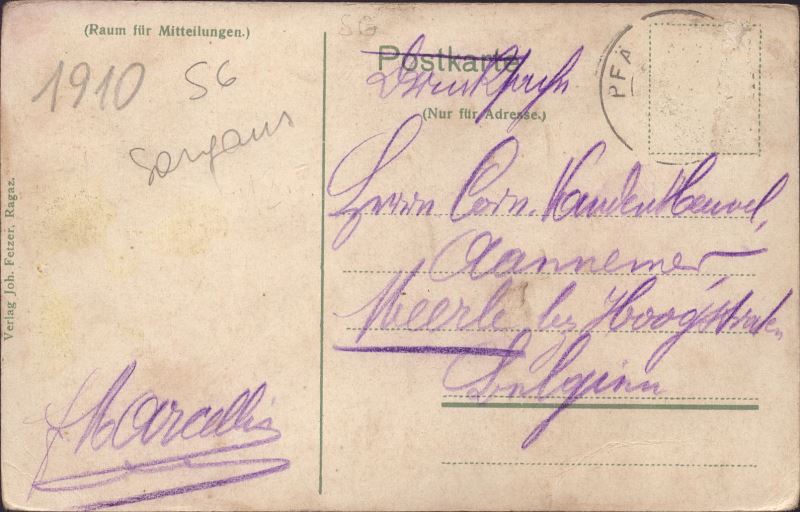 (Raum für Mitteilungen.)
1910 SG
Sargans
Verlag Joh. Fetzer, Ragaz.
SG
Postkarte
Drucksache
(Nur für Adresse.)
PFÄ
Herrn Corn. Vandenheuvel,
Aannemer,
Meerle by Hoogstraten
Belgien
Marcellis